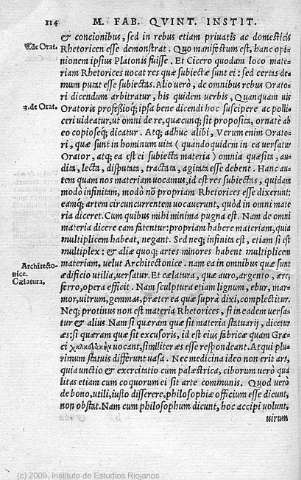 114 M. FAB. QVINT. INSTIT.
& concionibus, sed in rebus etiam priuatis ac domesticis
Rhetoricen esse demonstrat. Quo manifestum est, hanc opi-
nionem ipsius Platonis fuisse. Et Cicero quodam loco mate-
riam Rhetorices uocat res quæ subiectæ sunt ei: sed certas de-
mum putat esse subiectas. Alio uerò, de omnibus rebus Orato-
2. de Orat. ri dicendum arbitratur, his quidem uerbis, Quanquam uis
Oratoris professioq́; ipsa bene dicendi hoc suscipere ac pollī-
ceri uideatur, ut omni de re, quæcunq; sit proposita, ornatè ab
eo copioseq́; dicatur. Atq; adhuc alibi, Verum enim Orato-
ri, quæ sunt in hominum uita (quandoquidem in ea uersatur
Orator, atq; ea est ei subiecta materia) omnia quæsita, au-
dita, lecta, disputata, tractata, agitata esse debent. Hanc au-
tem quam nos materiam uocamus, id est res subiectas, quidam
modò infinitam, modò nō propriam Rhetorices esse dixerunt:
eamq́; artem circumcurrentem uocauerunt, quòd in omni mate
ria diceret. Cum quibus mihi minima pugna est. Nam de omni
materia dicere eam fatentur: propriam habere materiam, quia
multiplicem habeat, negant. Sed neq; infinita est, etiam si est
multiplex: & aliæ quoq; artes minores habent multiplicem
Architecto- materiam, uelut Architectonice. nam ea in omnibus quæ sunt
nice. ædificio utilia, uersatur. Et cælatura, quæ auro, argento, ære,
Cælatura. ferro, opera efficit. Nam sculptura etiam lignum, ebur, mar-
mor, uitrum, gemmas, præter ea quæ suprà dixi, complectitur.
Neq; protinus non est materia Rhetorices, si in eadem uersa-
tur & alius. Nam si quæram quæ sit materia statuarij, dicetur
æs: si quæram quæ sit excusoris, id est eius fabricæ quam Græ-
ci uocant, similiter æs esse respondeant. Atqui plu-
rimum statuis differunt uasa. Nec medicina ideo non erit ars,
quia unctio & exercitatio cum palæstrica, ciborum uerò qua
litas etiam cum coquorum ei sit arte communis. Quod uerò
de bono, utili, iusto disserere, philosophiæ officium esse dicunt,
non obstat. Nam cum philosophum dicunt, hoc accipi uolunt,
uirum
(c) 2009, Instituto de Estudios Riojanos